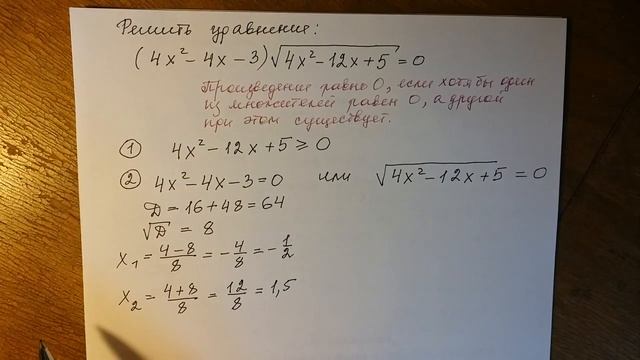 Решить уравнение:
(4x² - 4x - 3)√4x² - 12x + 5 = 0
Произведение равно 0, если хотя бы один
из множителей равен 0, а другой
при этом существует.
① 4x² - 12x + 5 ≥ 0
② 4x² - 4x - 3 = 0 или √4x² - 12x + 5 = 0
D = 16 + 48 = 64
√D = 8
x₁ = (4-8)/8 = -4/8 = -1/2
x₂ = (4+8)/8 = 12/8 = 1,5